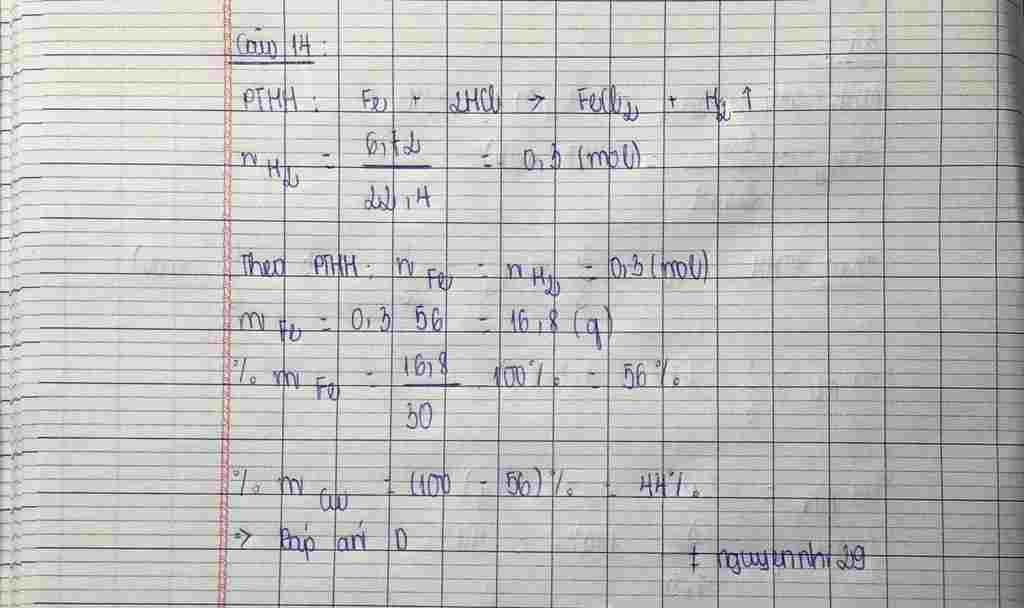 Câu 14:
PTHH: Fe + 2HCl → FeCl₂ + H₂↑
n H₂ = 6,72 / 22,4 = 0,3 (mol)
Theo PTHH: n Fe = n H₂ = 0,3 (mol)
m Fe = 0,3 . 56 = 16,8 (g)
% m Fe = 16,8 / 30 . 100% = 56%
% m Cu = (100 - 56)% = 44%
=> Đáp án D
nguyennhi29